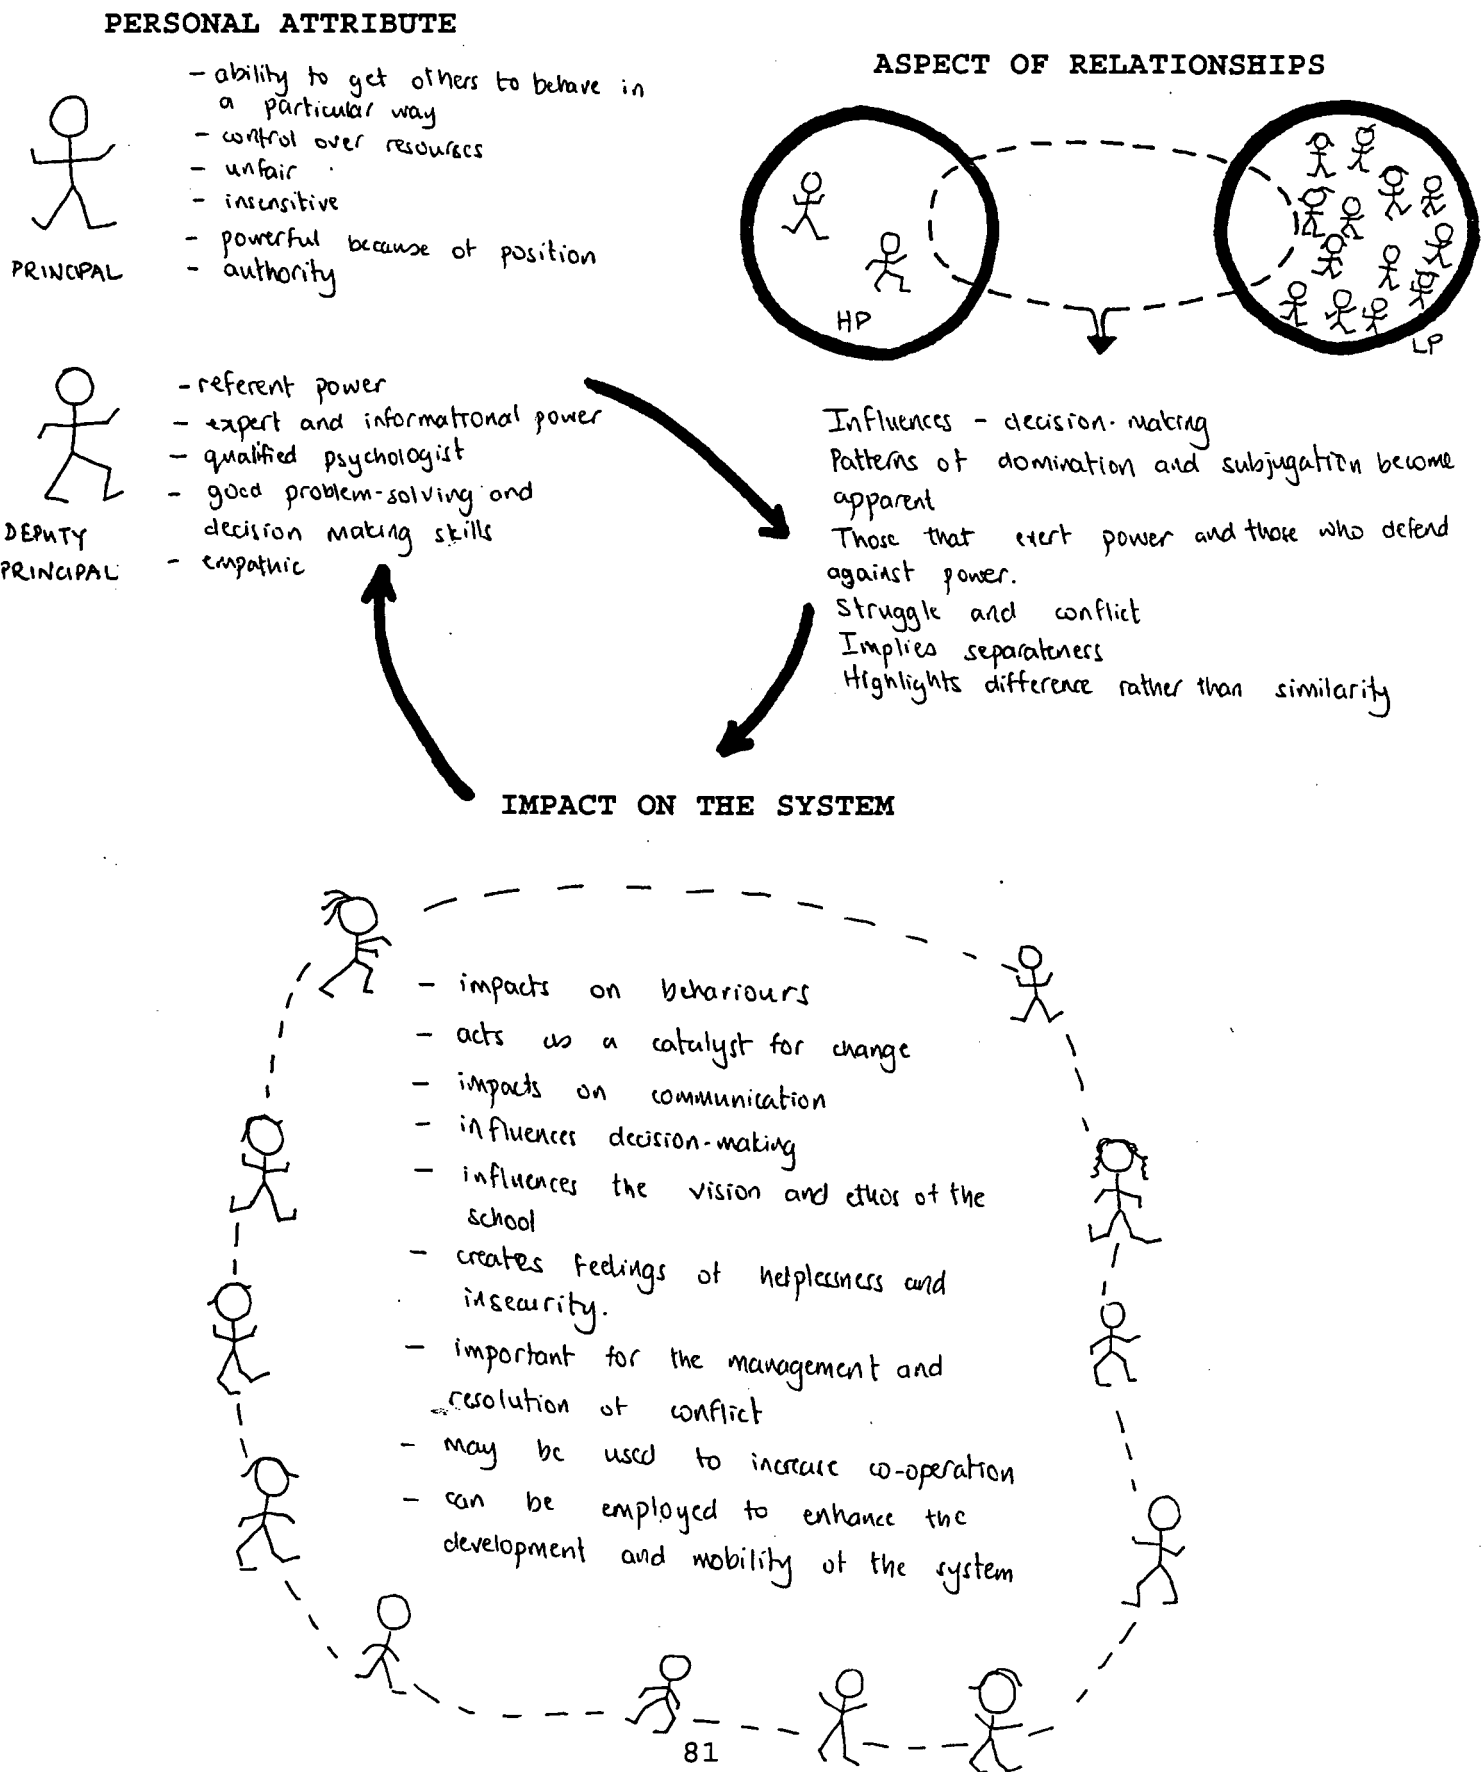 PERSONAL ATTRIBUTE
- ability to get others to behave in
a particular way
- control over resources
- unfair
- insensitive
- powerful because of position
- authority
PRINCIPAL
- referent power
- expert and informational power
- qualified psychologist
- good problem-solving and
decision making skills
- empathic
DEPUTY
PRINCIPAL
ASPECT OF RELATIONSHIPS
HP
LP
Influences - decision-making
Patterns of domination and subjugation become
apparent
Those that exert power and those who defend
against power.
Struggle and conflict
Implies separateness
Highlights difference rather than similarity
IMPACT ON THE SYSTEM
- impacts on behaviours
- acts as a catalyst for change
- impacts on communication
- influences decision-making
- influences the vision and ethos of the
school
- creates feelings of helplessness and
insecurity.
- important for the management and
resolution of conflict
- may be used to increase co-operation
- can be employed to enhance the
development and mobility of the system
81